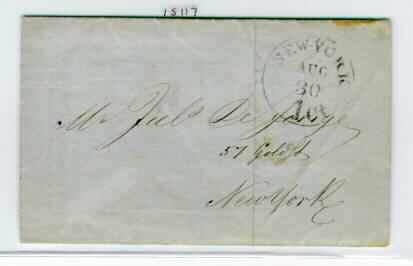 15117
NEW-YORK
AUG
30
1ct
Mr Jul^s De Jonge
57 Gold St
New York